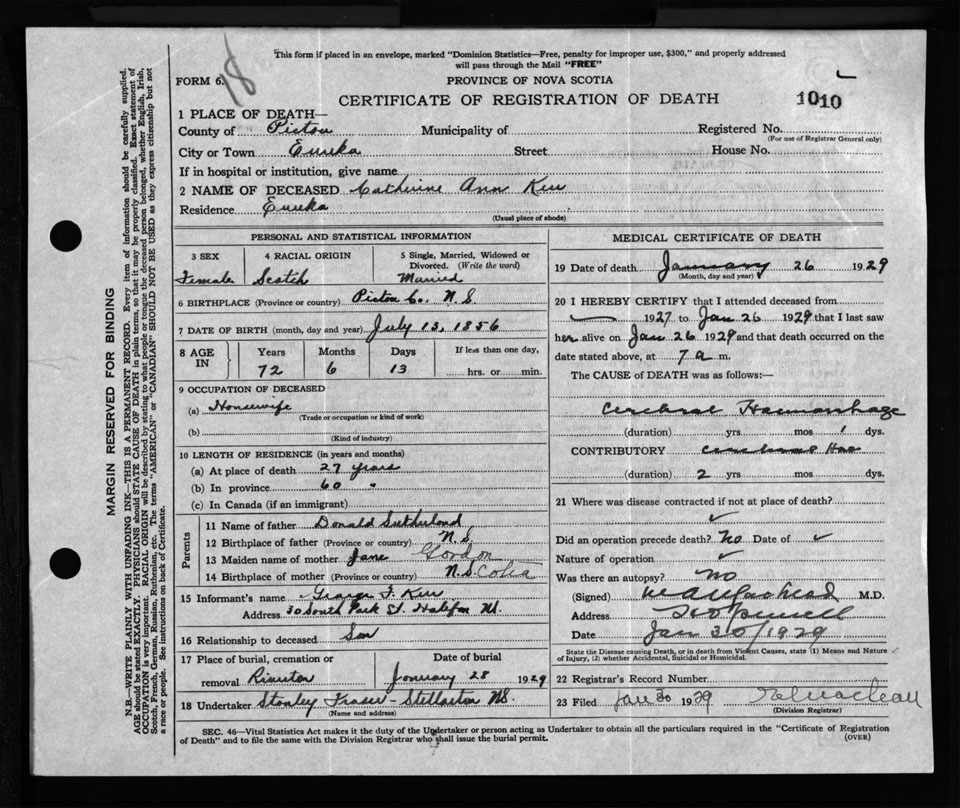 This form if placed in an envelope, marked "Dominion Statistics—Free, penalty for improper use, $300," and properly addressed
will pass through the Mail "FREE"
FORM 6.
18
PROVINCE OF NOVA SCOTIA
CERTIFICATE OF REGISTRATION OF DEATH
1010
1 PLACE OF DEATH—
County of Pictou Municipality of Registered No.
(For use of Registrar General only)
City or Town Eureka Street House No.
If in hospital or institution, give name
2 NAME OF DECEASED Catherine Ann Kerr
Residence Eureka
(Usual place of abode)
PERSONAL AND STATISTICAL INFORMATION
3 SEX 4 RACIAL ORIGIN 5 Single, Married, Widowed or Divorced. (Write the word)
Female Scotch Married
6 BIRTHPLACE (Province or country) Pictou Co. N.S.
7 DATE OF BIRTH (month, day and year) July 13, 1856
8 AGE IN Years Months Days If less than one day,
72 6 13 hrs. or min.
9 OCCUPATION OF DECEASED
(a) Housewife
(Trade or occupation or kind of work)
(b)
(Kind of industry)
10 LENGTH OF RESIDENCE (in years and months)
(a) At place of death 27 years
(b) In province 60 "
(c) In Canada (if an immigrant)
Parents
11 Name of father Donald Sutherland
12 Birthplace of father (Province or country) N.S.
13 Maiden name of mother Jane Gordon
14 Birthplace of mother (Province or country) N.Scotia
15 Informant's name George F. Kerr
Address 30 South Park St. Halifax NS.
16 Relationship to deceased Son
17 Place of burial, cremation or removal Date of burial
January 28 1929
18 Undertaker Stanley Fraser Stellarton NS.
(Name and address)
MEDICAL CERTIFICATE OF DEATH
19 Date of death January 26 1929
(Month, day and year)
20 I HEREBY CERTIFY that I attended deceased from
1927 to Jan 26 1929 that I last saw
her alive on Jan 26 1929 and that death occurred on the
date stated above, at 7 a m.
The CAUSE of DEATH was as follows:—
Cerebral Haemorrhage
(duration) yrs. mos. 1 dys.
CONTRIBUTORY Cerebral Hae
(duration) 2 yrs. mos. dys.
21 Where was disease contracted if not at place of death?
Did an operation precede death? No Date of
Nature of operation
Was there an autopsy? No
(Signed) M.D.
Address Hopewell
Date Jan 30/1929
State the Disease causing Death, or in death from Violent Causes, state (1) Means and Nature
of Injury, (2) whether Accidental, Suicidal or Homicidal.
22 Registrar's Record Number
23 Filed Jan 30 1929
(Division Registrar)
SEC. 46—Vital Statistics Act makes it the duty of the Undertaker or person acting as Undertaker to obtain all the particulars required in the "Certificate of Registration
of Death" and to file the same with the Division Registrar who shall issue the burial permit.
(OVER)
MARGIN RESERVED FOR BINDING
N.B.—WRITE PLAINLY WITH UNFADING INK—THIS IS A PERMANENT RECORD. Every item of information should be carefully supplied.
AGE should be stated EXACTLY. PHYSICIANS should STATE CAUSE OF DEATH in plain terms, so that it may be properly classified. Exact statement of
OCCUPATION is very important. RACIAL ORIGIN will be described by stating to what people or tongue the deceased person belonged, whether English, Irish,
Scotch, French, German, Russian, Ruthenian, etc. The terms "AMERICAN" or "CANADIAN" SHOULD NOT BE USED as they express citizenship but not
a race or people. See instructions on back of Certificate.